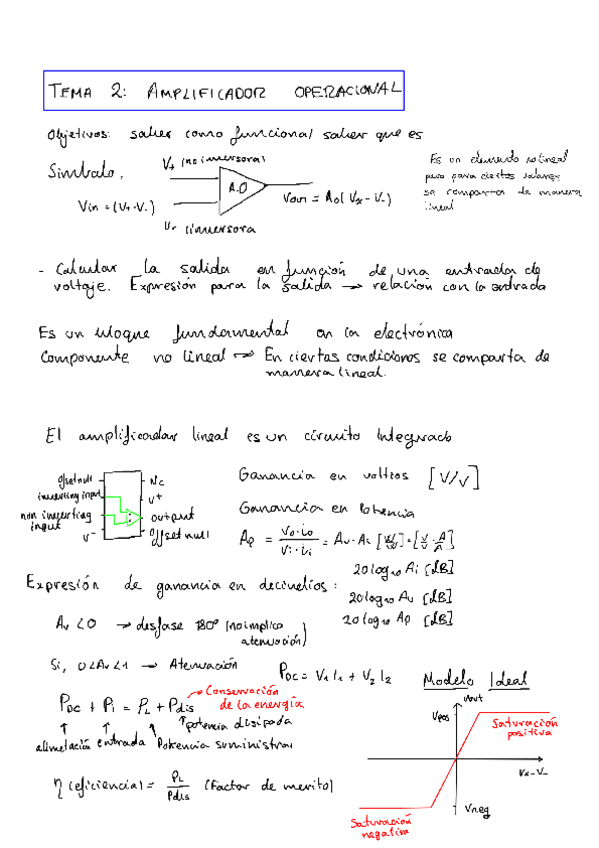 TEMA 2: AMPLIFICADOR OPERACIONAL
Objetivos: saber como funciona / saber que es
Simbolo,
V+ (no inversora)
A.O
Vin = (V+-V-)
Vout = Ao( V+ - V-)
V- (inversora
Es un elemento no lineal
pero para ciertos valores
se comporta de manera
lineal
- Calcular la salida en función de una entrada de
voltaje. Expresión para la salida → relación con la entrada
Es un bloque fundamental en la electrónica
Componente no lineal → En ciertas condiciones se comporta de
manera lineal.
El amplificador lineal es un circuito Integrado
offset null
inverting input
non inverting
input
V-
NC
V+
output
Offset null
Ganancia en voltios [V/V]
Ganancia en Potencia
Ap = Vo·io / Vi·ii = Av·Ai [W/W]=[V/V · A/A]
20log10 Ai [dB]
Expresión de ganancia en decibelios:
20log10 Av [dB]
20log10 Ap [dB]
Av < 0 → desfase 180º (no implica
atenuación)
Si, 0<Av<1 → Atenuación
PDC = V1 I1 + V2 I2
Conservación
de la energía
PDC + Pi = PL + Pdis
potencia disipada
alimetación entrada Potencia suministrar
η (eficiencia) = PL / Pdis (Factor de merito)
Modelo Ideal
Vout
Vpos
Saturación
positiva
V+-V-
Vneg
Saturación
negativa